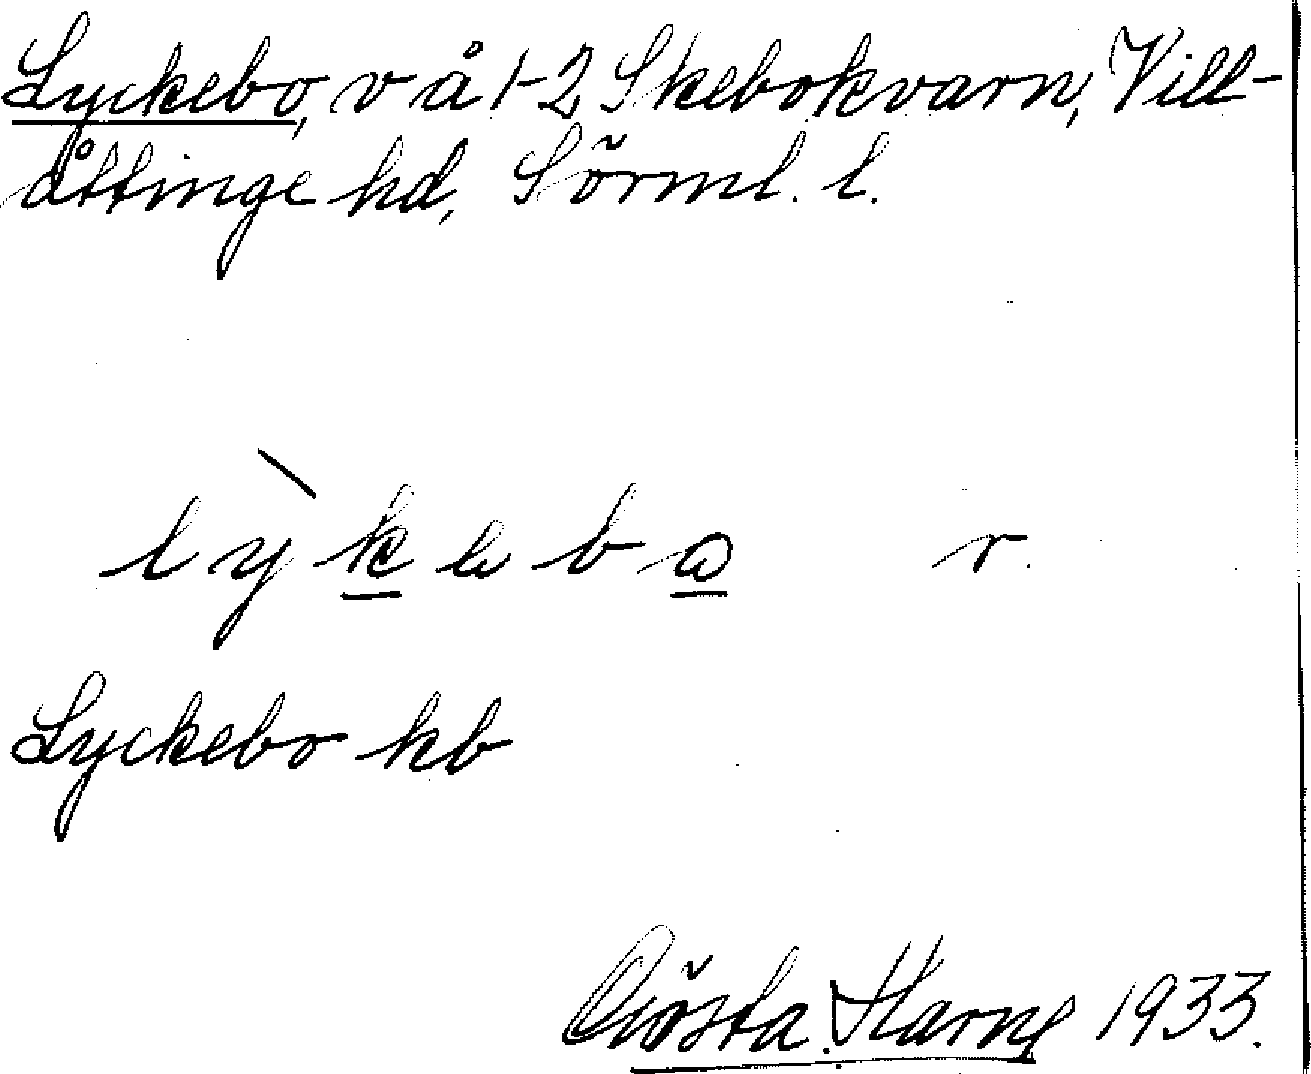 Lyckebo, v å 1-2 Skebokvarn, Vill-
åttinge hd, Sörml. l.
lỳkebo r.
Lyckebo kb
Gösta Harne 1933.